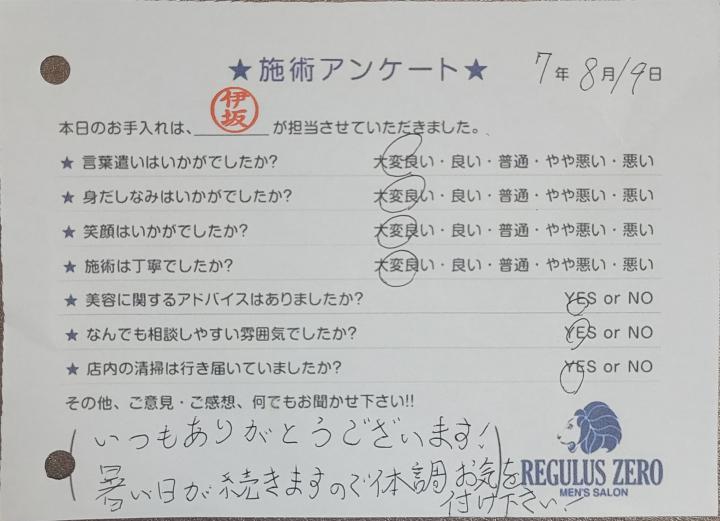 ★施術アンケート★ 7年8月19日
本日のお手入れは、伊坂が担当させていただきました。
★ 言葉遣いはいかがでしたか? 大変良い・良い・普通・やや悪い・悪い
★ 身だしなみはいかがでしたか? 大変良い・良い・普通・やや悪い・悪い
★ 笑顔はいかがでしたか? 大変良い・良い・普通・やや悪い・悪い
★ 施術は丁寧でしたか? 大変良い・良い・普通・やや悪い・悪い
★ 美容に関するアドバイスはありましたか? YES or NO
★ なんでも相談しやすい雰囲気でしたか? YES or NO
★ 店内の清掃は行き届いていましたか? YES or NO
その他、ご意見・ご感想、何でもお聞かせ下さい!!
いつもありがとうございます!
暑い日が続きますので体調お気を
付け下さい!
REGULUS ZERO
MEN'S SALON